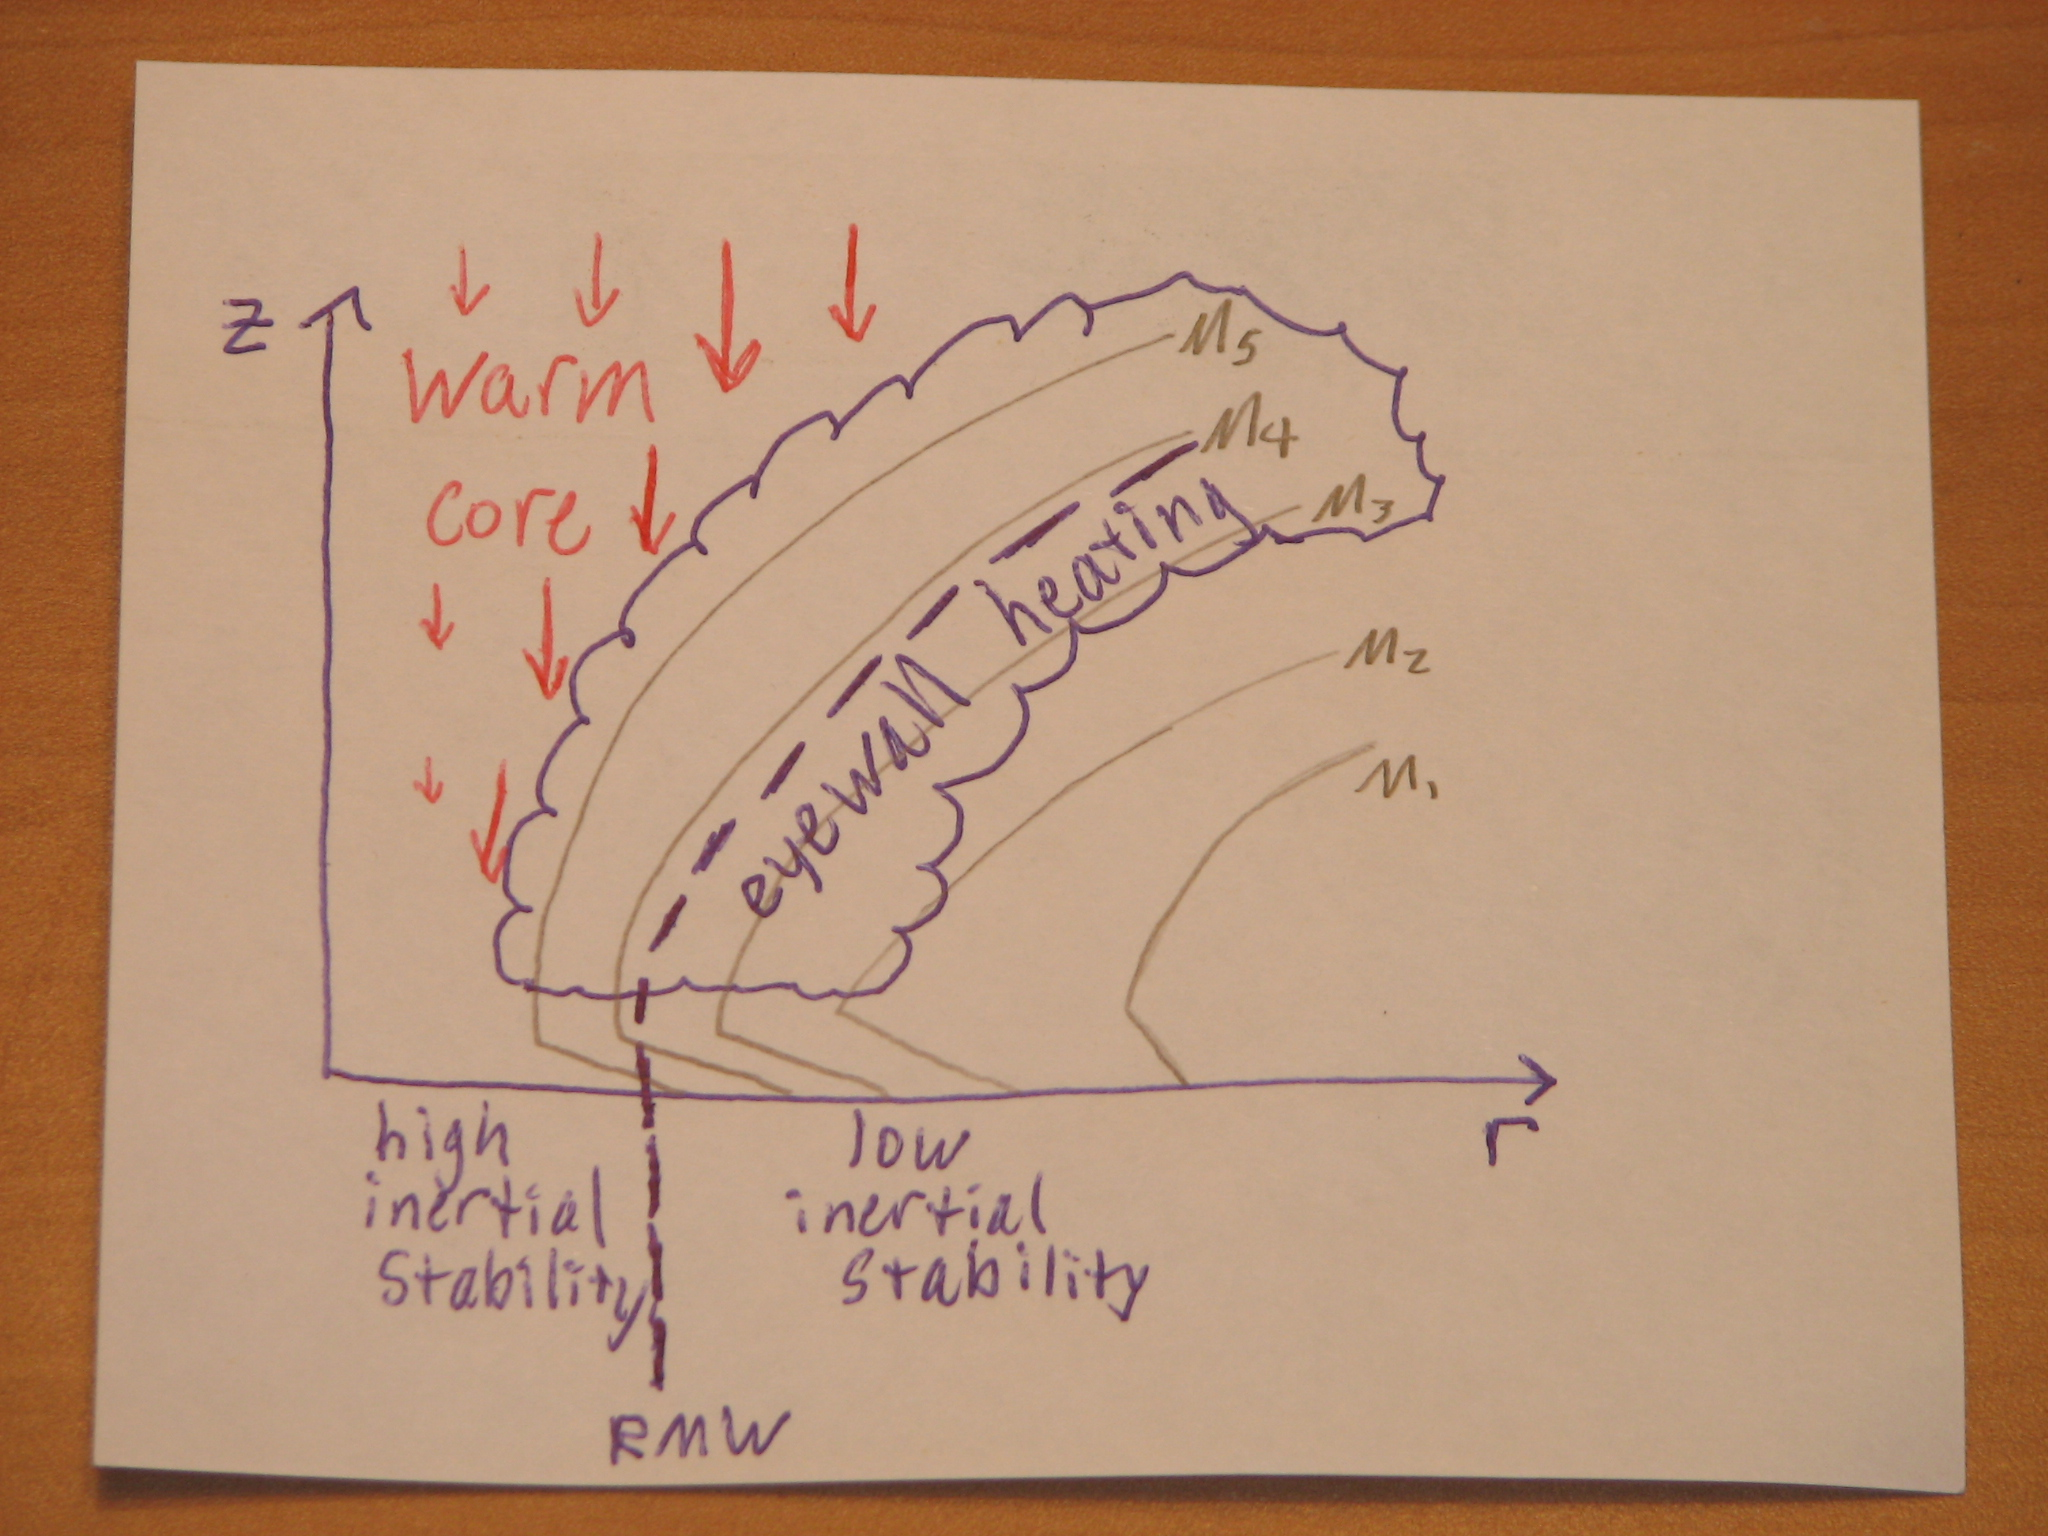 z
warm
core
M5
M4
M3
M2
M1
eyewall heating
r
high
inertial
stability
low
inertial
stability
RMW